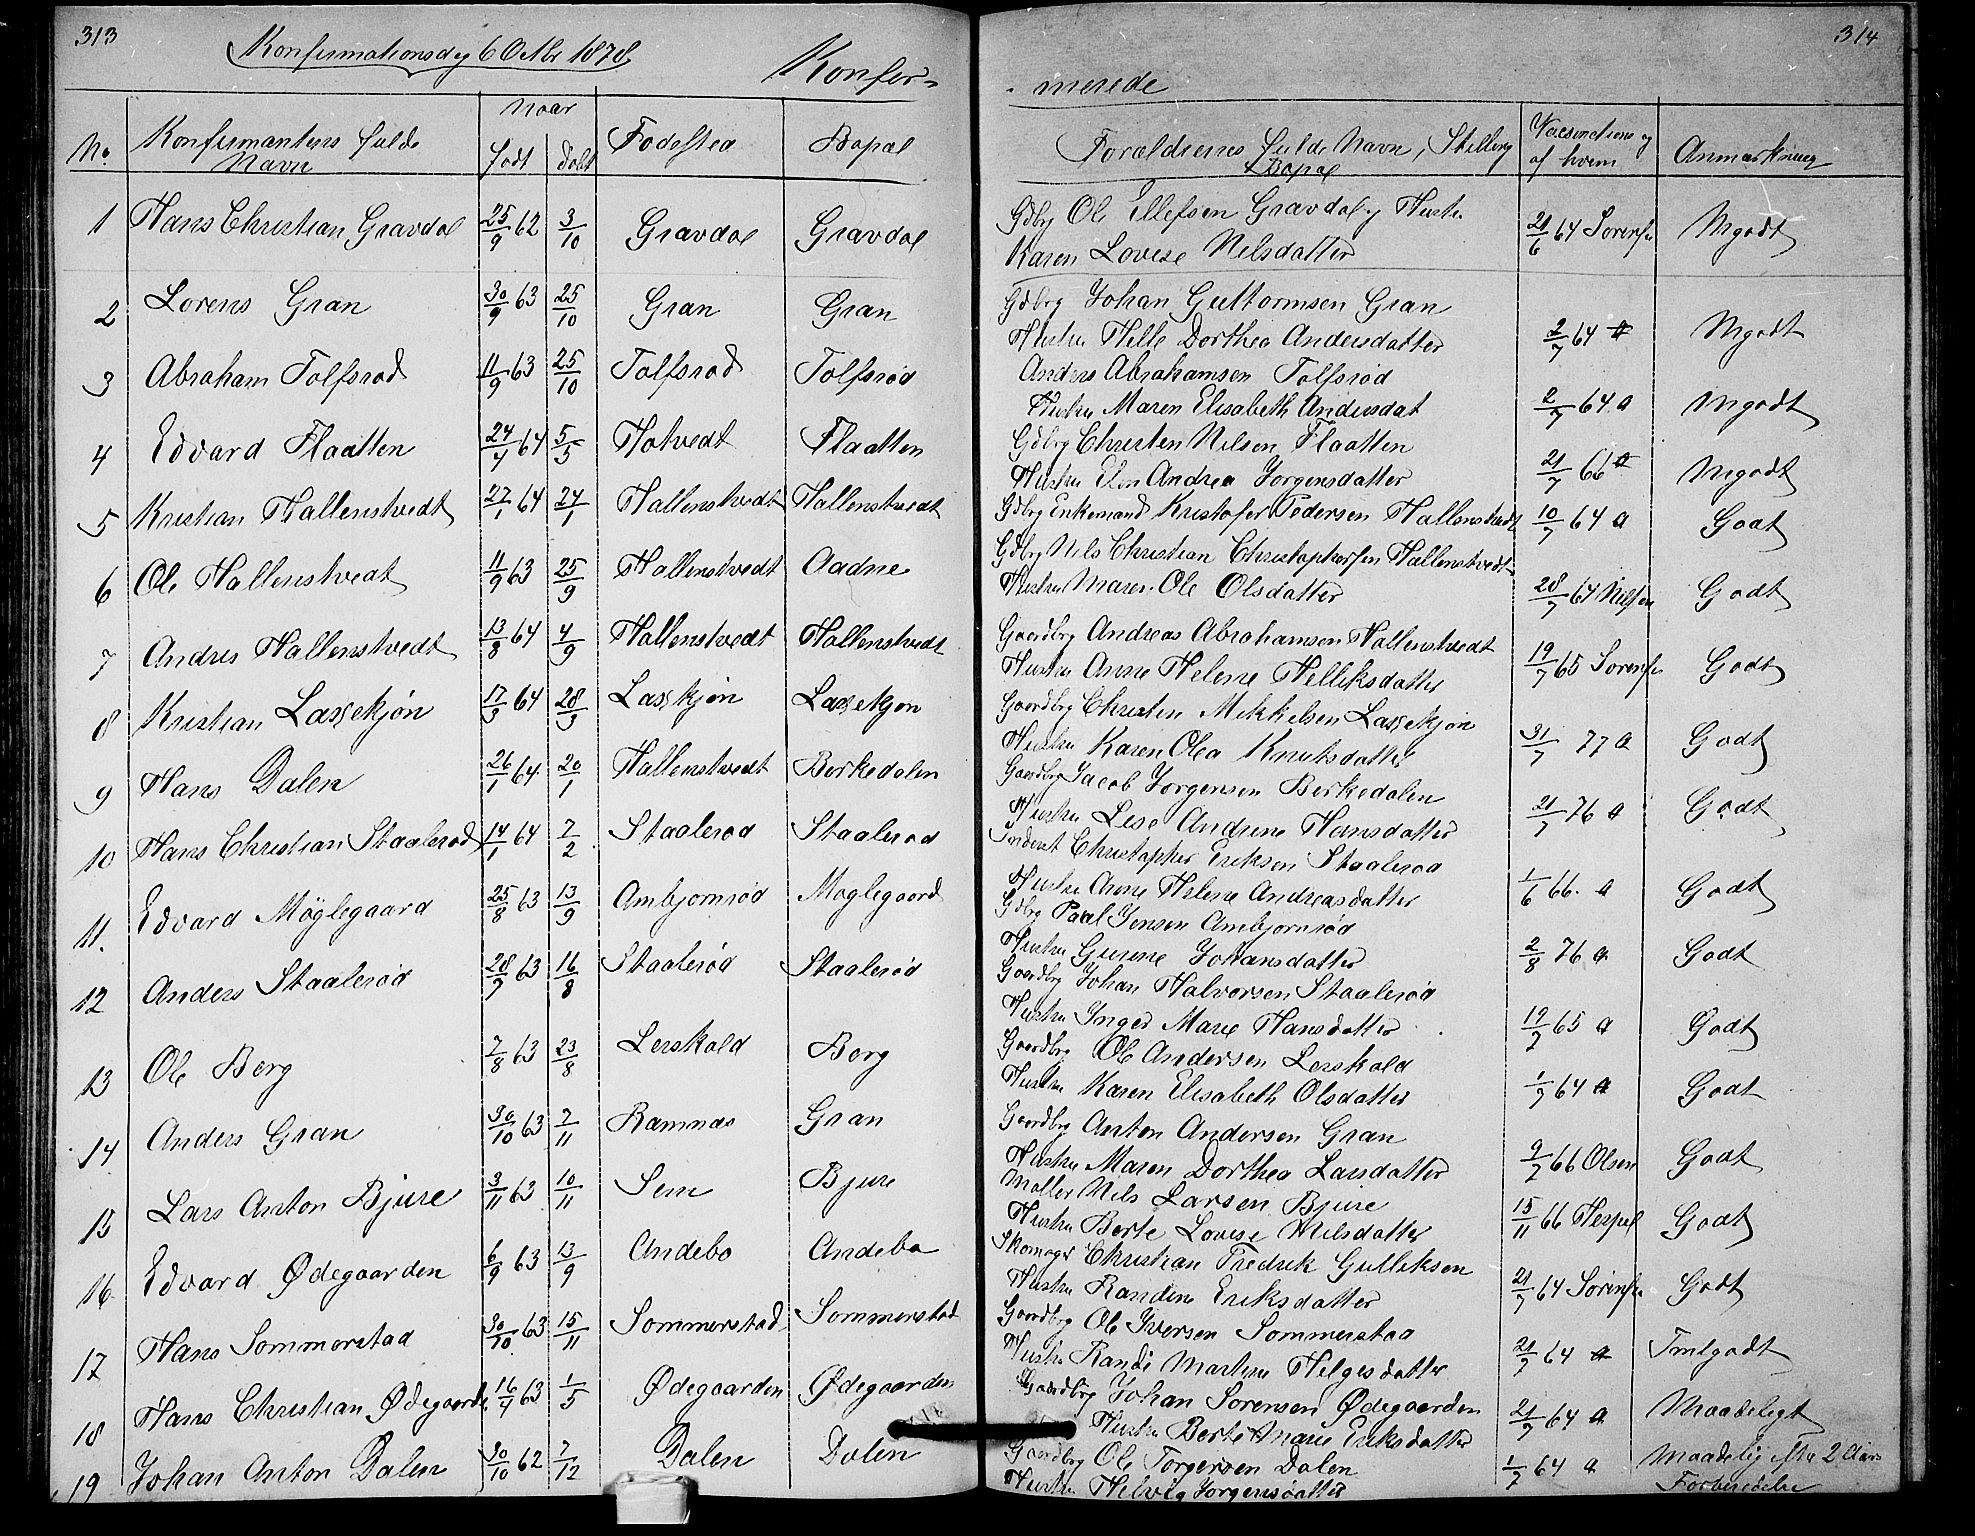 313
Konfirmationsdag 6 Octbr 1878
Konfir-
No. Konfirmantens fulde Navn Naar født døbt Fødested Bopæl
1 Hans Christian Gravdal 25/9 62 3/10 Gravdal Gravdal
2 Lorens Gran 30/9 63 25/10 Gran Gran
3 Abraham Tolfsrød 11/9 63 25/10 Tolfsrød Tolfsrød
4 Edvard Flaatten 24/4 64 5/5 Hotvedt Flaatten
5 Kristian Hallenstvedt 27/1 64 24/1 Hallenstvedt Hallenstvedt
6 Ole Hallenstvedt 11/9 63 25/9 Hallenstvedt Aadne
7 Andres Hallenstvedt 13/8 64 4/9 Hallenstvedt Hallenstvedt
8 Kristian Lassekjøn 17/9 64 28/9 Lasskjøn Lassekjøn
9 Hans Dalen 26/1 64 20/1 Hallenstvedt Berkedalen
10 Hans Christian Staalerød 14/1 64 7/2 Staalerød Staalerød
11. Edvard Møglegaard 25/8 63 13/9 Ambjørnrød Møglegaard
12 Anders Staalerød 28/7 63 16/8 Staalerød Staalerød
13 Ole Berg 7/8 63 23/8 Lerskald Berg
14 Anders Gran 30/10 63 7/11 Ramnæs Gran
15 Lars Anton Bjure 3/11 63 10/11 Sem Bjure
16 Edvard Ødegaarden 6/9 63 13/9 Andebo Andebo
17 Hans Sommerstad 30/10 63 15/11 Sommerstad Sommerstad
18 Hans Christian Ødegaarden 16/4 63 1/5 Ødegaarden Ødegaarden
19 Johan Anton Dalen 30/10 62 7/12 Dalen Dalen
314
-merede
Forældrenes fulde Navn, Stilling Bopæl Vaccinations og af hvem Anmærkning
Gdbrg Ole Ellefsen Gravdal og Hustru
Karen Lovise Nilsdatter 21/6 64 Sørensen Mgodt
Gdbrg Johan Guttormsen Gran
Hustru Helle Dorthea Andersdatter 2/7 64 a Mgodt
Anders Abrahamsen Tolfsrød
Hustru Maren Elisabeth Andersdat 2/7 64 a Mgodt
Gdbrg Christen Nilsen Flaatten
Hustru Elen Andrea Jørgensdatter 21/7 66 a Mgodt
Gdbrg Enkemand Kristofer Pedersen Hallenstvedt 10/7 64 a Godt
Gdbrg Nils Christian Christophersen Hallenstvedt
Hustru Maren Ole Olsdatter 28/7 64 Nilsen Godt
Gaardbrg Andreas Abrahamsen Hallenstvedt
Hustru Anne Helene Helliksdatter 19/7 65 Sørensen Godt
Gaardbrg Christen Mikkelsen Lassekjøn
Hustru Karen Olea Knutsdatter 31/7 77 a Godt
Gaardbrg Jacob Jørgensen Berkedalen
Hustru Lise Andrine Hansdatter 21/7 76 a Godt
Inderst Christopher Eriksen Staalerød
Hustru Anne Helene Andreasdatter 1/6 66. a Godt
Gdbrg Paul Jensen Ambjørnrød
Hustru Gurine Johansdatter 2/8 76 a Godt
Gaardbrg Johan Halvorsen Staalerød
Hustru Inger Marie Hansdatter 19/7 65 a Godt
Gaardbrg Ole Andersen Lerskald
Hustru Karen Elisabeth Olsdatter 1/7 64 a Godt
Gaardbrg Anton Andersen Gran
Hustru Maren Dorthea Larsdatter 9/7 66 Olsen Godt
Møller Nils Larsen Bjure
Hustru Berte Lovise Nilsdatter 15/11 66 Godt
Skomager Christian Fredrik Gulliksen
Hustru Randine Eriksdatter 21/7 64 Sørensen Godt
Gaardbrg Ole Iversen Sommerstad
Hustru Randi Martine Helgesdatter 21/7 64 a Tmlgodt
Gaardbrg Johan Sørensen Ødegaarden
Hustru Berte Marie Eriksdatter 21/7 64 a Maadeligt
Gaardbrg Ole Torgersen Dalen
Hustru Helvig Jørgensdatter 1/7 64 a Maadelig efter 2 Aars Forberedelse